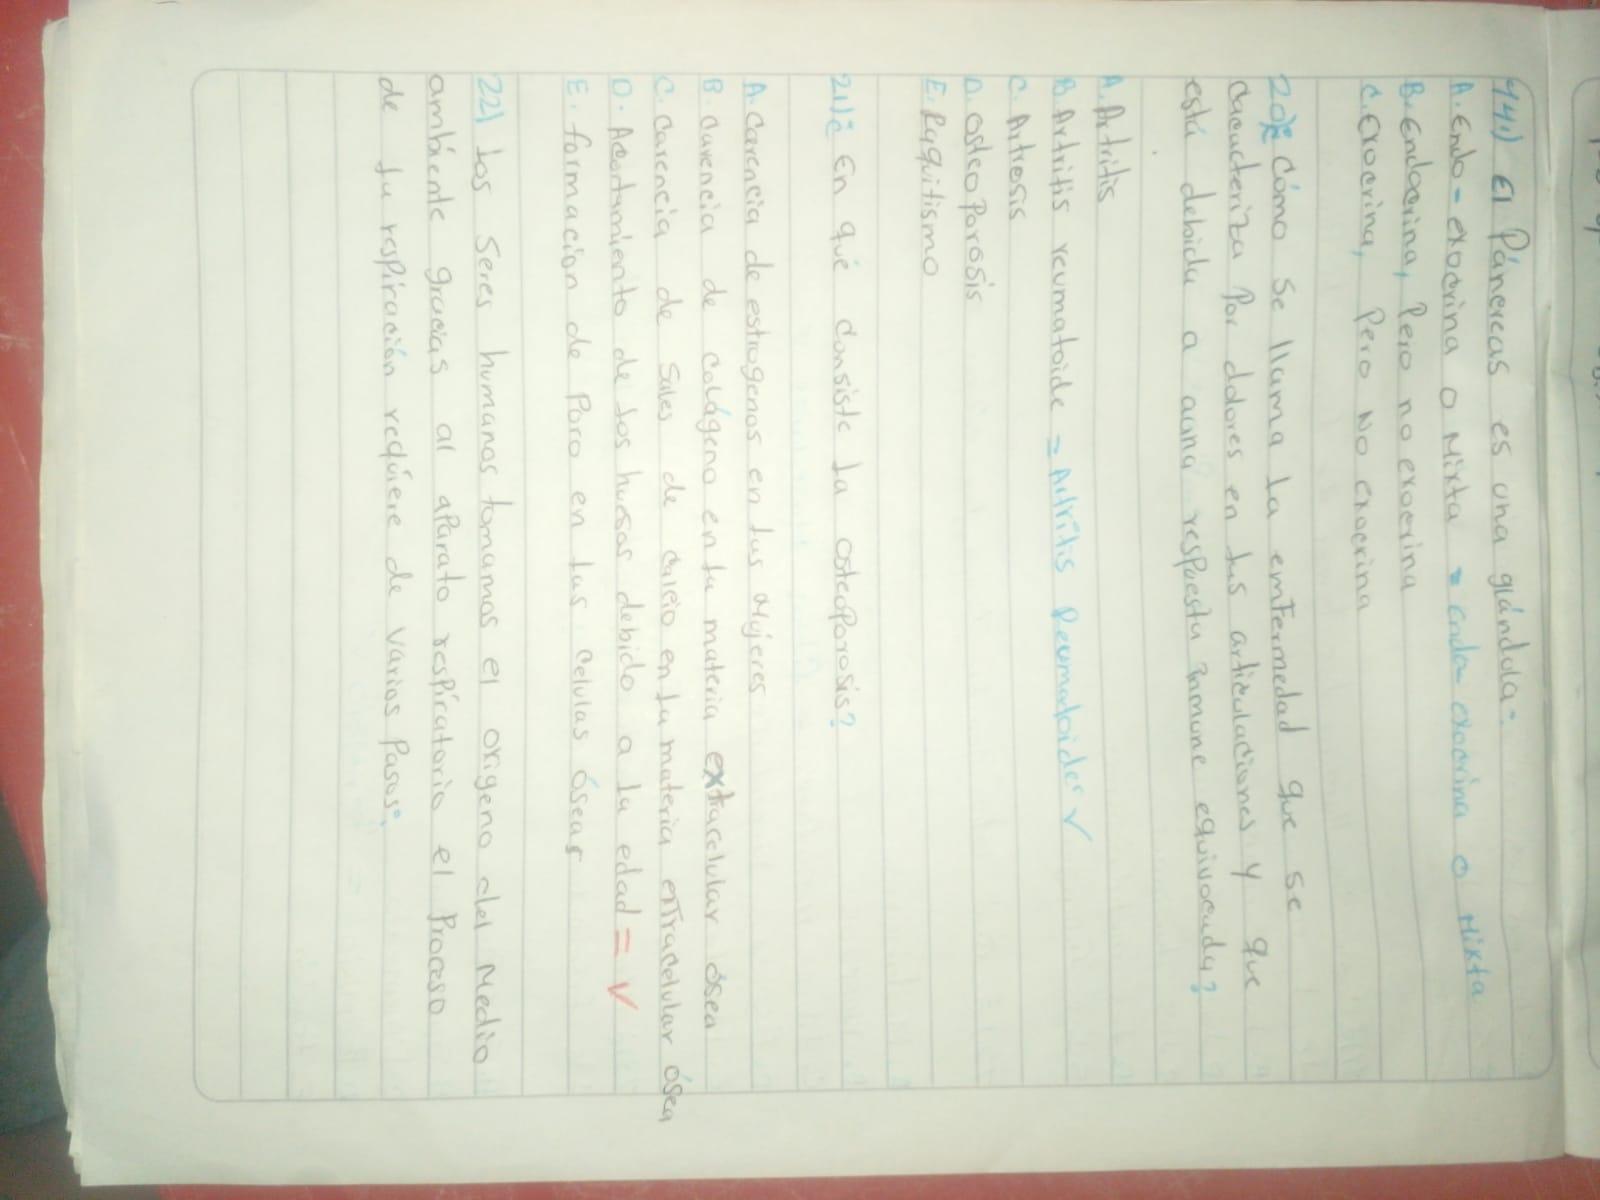 44.) El Páncreas es una glándula:
A. Endo-exocrina o Mixta = endo-exocrina o Mixta
B. Endocrina, Pero no exocrina
C. Exocrina, Pero No enocrina
20) ¿Cómo se llama la enfermedad que se
caracteriza Por dolores en las articulaciones y que
está debida a auna respuesta inmune equivocada?
A. Artritis
B. Artritis reumatoide = Artritis Reumatoide ✓
C. Artresis
D. osteoporosis
E. Raquitismo
21) ¿ En qué consiste la osteoporosis?
A. Carencia de estrogenos en las Mujeres
B. Carencia de colágeno en la materia extracelular ósea
C. Carencia de sales de calcio en la materia extracelular ósea
D. Acortamiento de los huesos debido a la edad = ✓
E. formación de Poro en las celulas óseas
22) Los seres humanos tomamos el oxigeno del Medio
ambiente gracias al aparato respiratorio el Proceso
de la respiración requiere de varios Pasos: